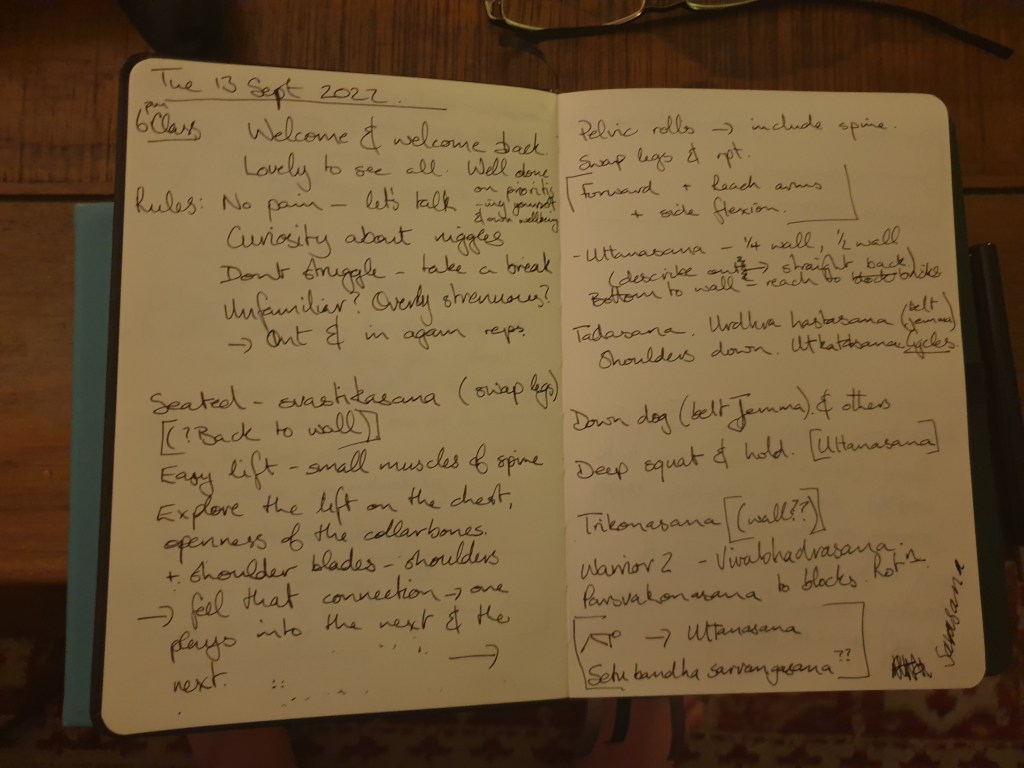 Tue 13 Sept 2022.
6pm Class
Welcome & welcome back.
Lovely to see all. Well done
on prioritis
-ing yourself
& own wellbeing
Rules: No pain – let's talk
Curiosity about niggles
Dont struggle – take a break
Unfamiliar? Overly strenuous?
→ Out & in again reps.
Seated – svastikasana (swap legs)
[(?Back to wall)]
Easy lift – small muscles of spine
Explore the lift on the chest,
openness of the collarbones.
+ shoulder blades – shoulders
→ feel that connection → one
plays into the next & the
next. →
Pelvic rolls → include spine.
Swap legs & rpt.
[Forward + Reach arms
+ side flexion.]
- Uttanasana – 1/4 wall, 1/2 wall
(describe → straight back)
Bottom to wall – reach to bricks
Tadasana. Urdhva hastasana (belt
Jemma)
Shoulders down. Utkatasana cycles.
Down dog (belt Jemma) & others
Deep squat & hold. [Uttanasana]
Trikonasana [(wall??)]
Warrior 2 – Virabhadrasana.
Parsvakonasana to blocks. Rot'n.
[→ Uttanasana
Setu bandha sarvangasana??]
Savasana